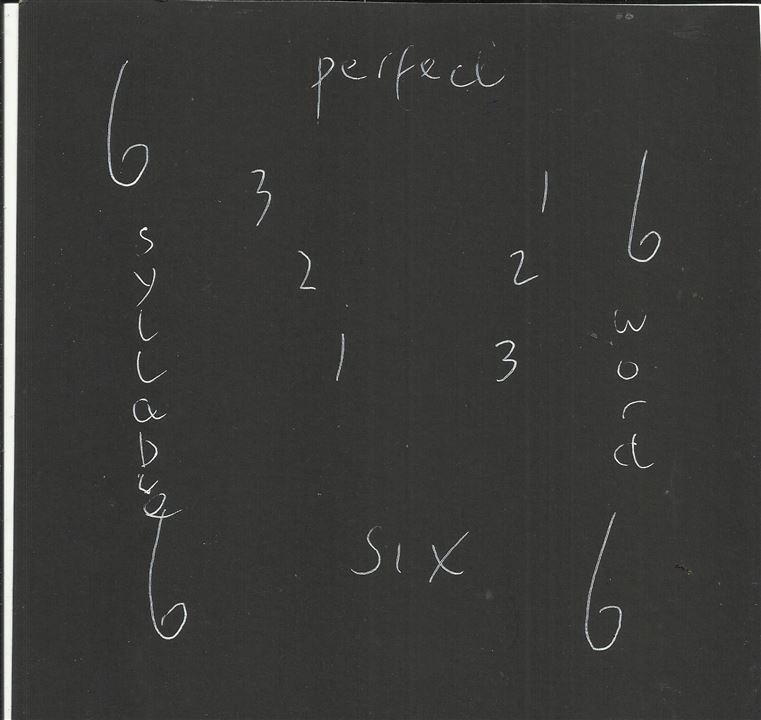 perfect
6
3 1
6
2 2
1 3
word
six
6 6